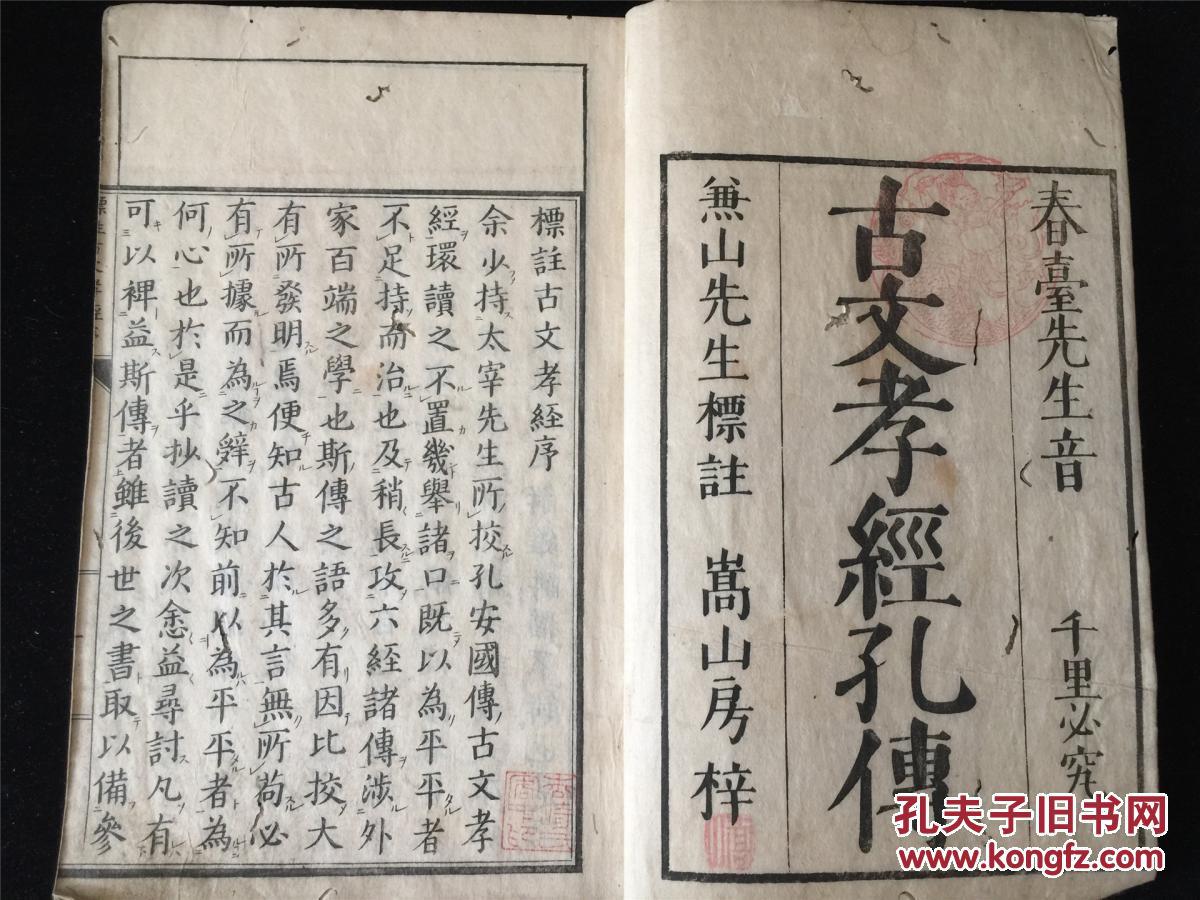 春臺先生音 千里必究
古文孝經孔傳
兼山先生標註 嵩山房梓
標註古文孝經序
余少持太宰先生所挍孔安國傳古文孝
經環讀之不置幾舉諸口既以為平平者
不足持而治也及稍長攻六經諸傳涉外
家百端之學也斯傳之語多有因比挍大
有所發明焉便知古人於其言無所苟必
有所據而為之辭不知前以為平平者為
何心也於是乎抄讀之次愈益尋討凡有
可以裨益斯傳者雖後世之書取以備參
孔夫子旧书网
www.kongfz.com